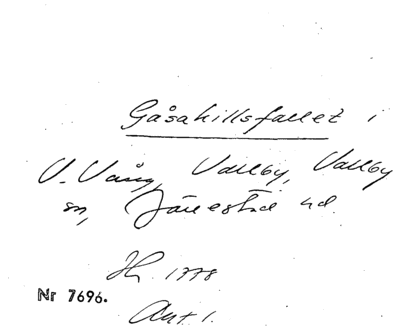 Gåsahillsfallet i
V. Vång, Vallby, Vallby
sn, Järrestad hd.
Hz. 1778
Nr 7696.
Akt 1.